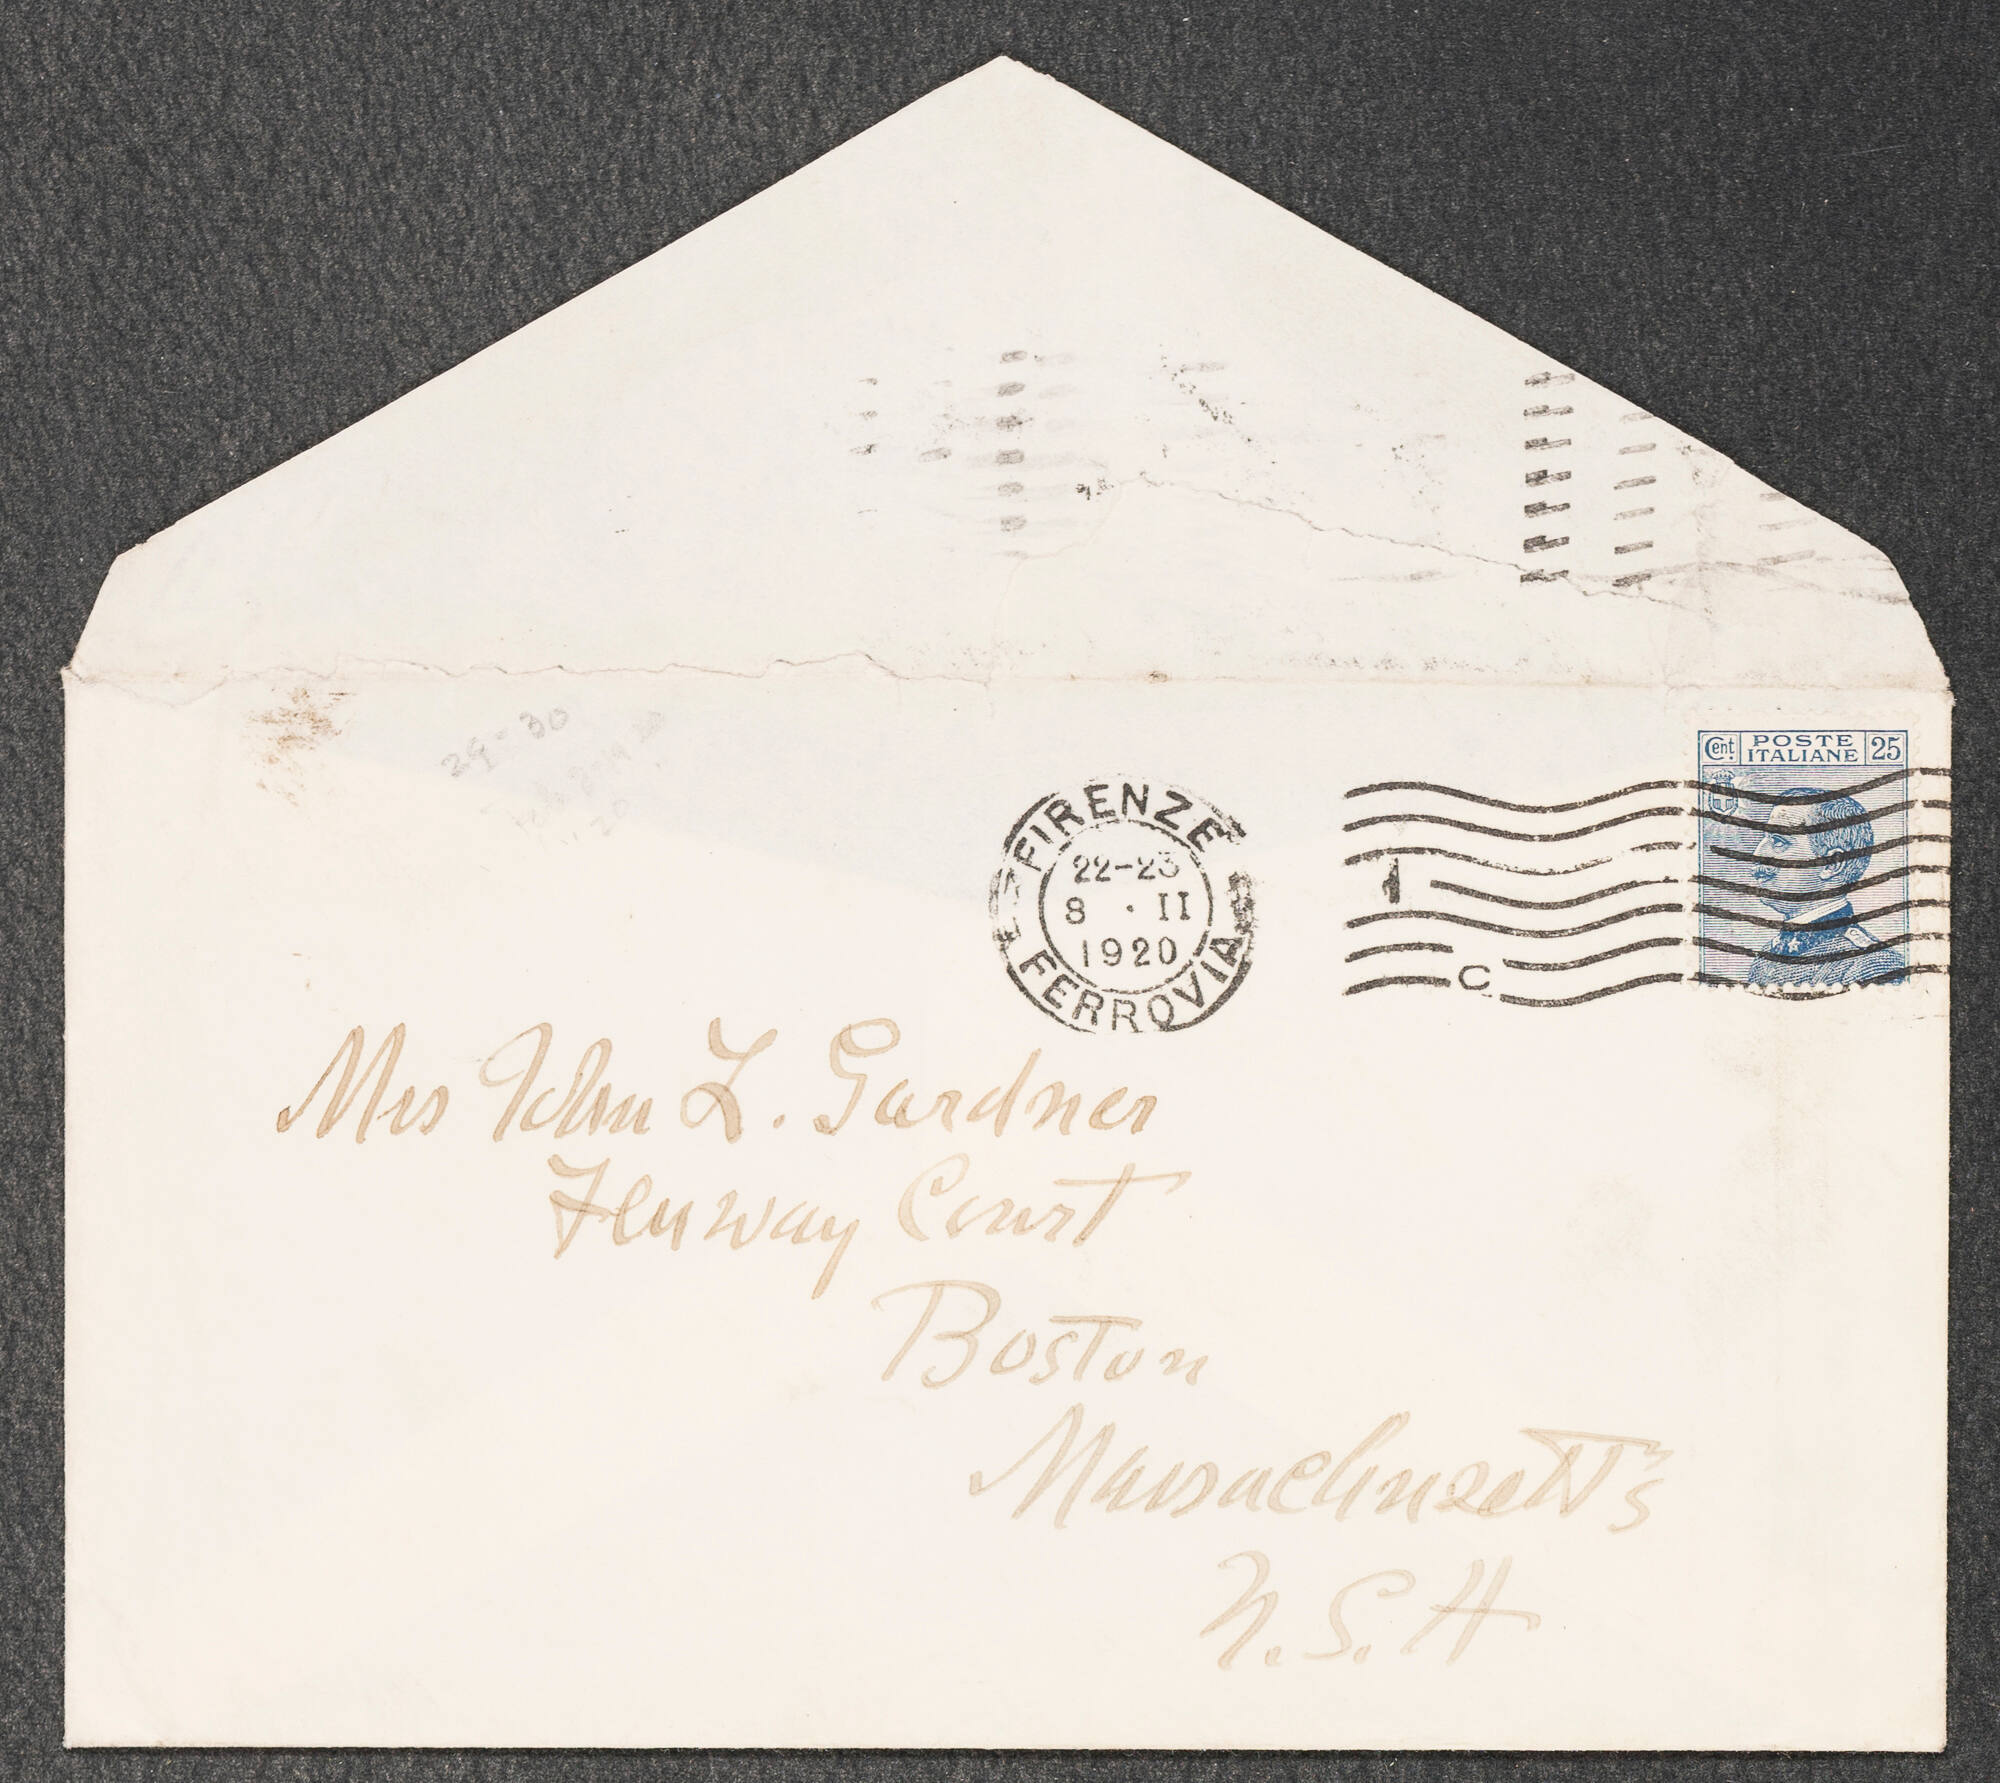 29-30
Cent. POSTE ITALIANE 25
FIRENZE
22-23
8 · II
1920
FERROVIA
1
C
Mrs John L. Gardner
Fenway Court
Boston
Massachusetts
U.S.A